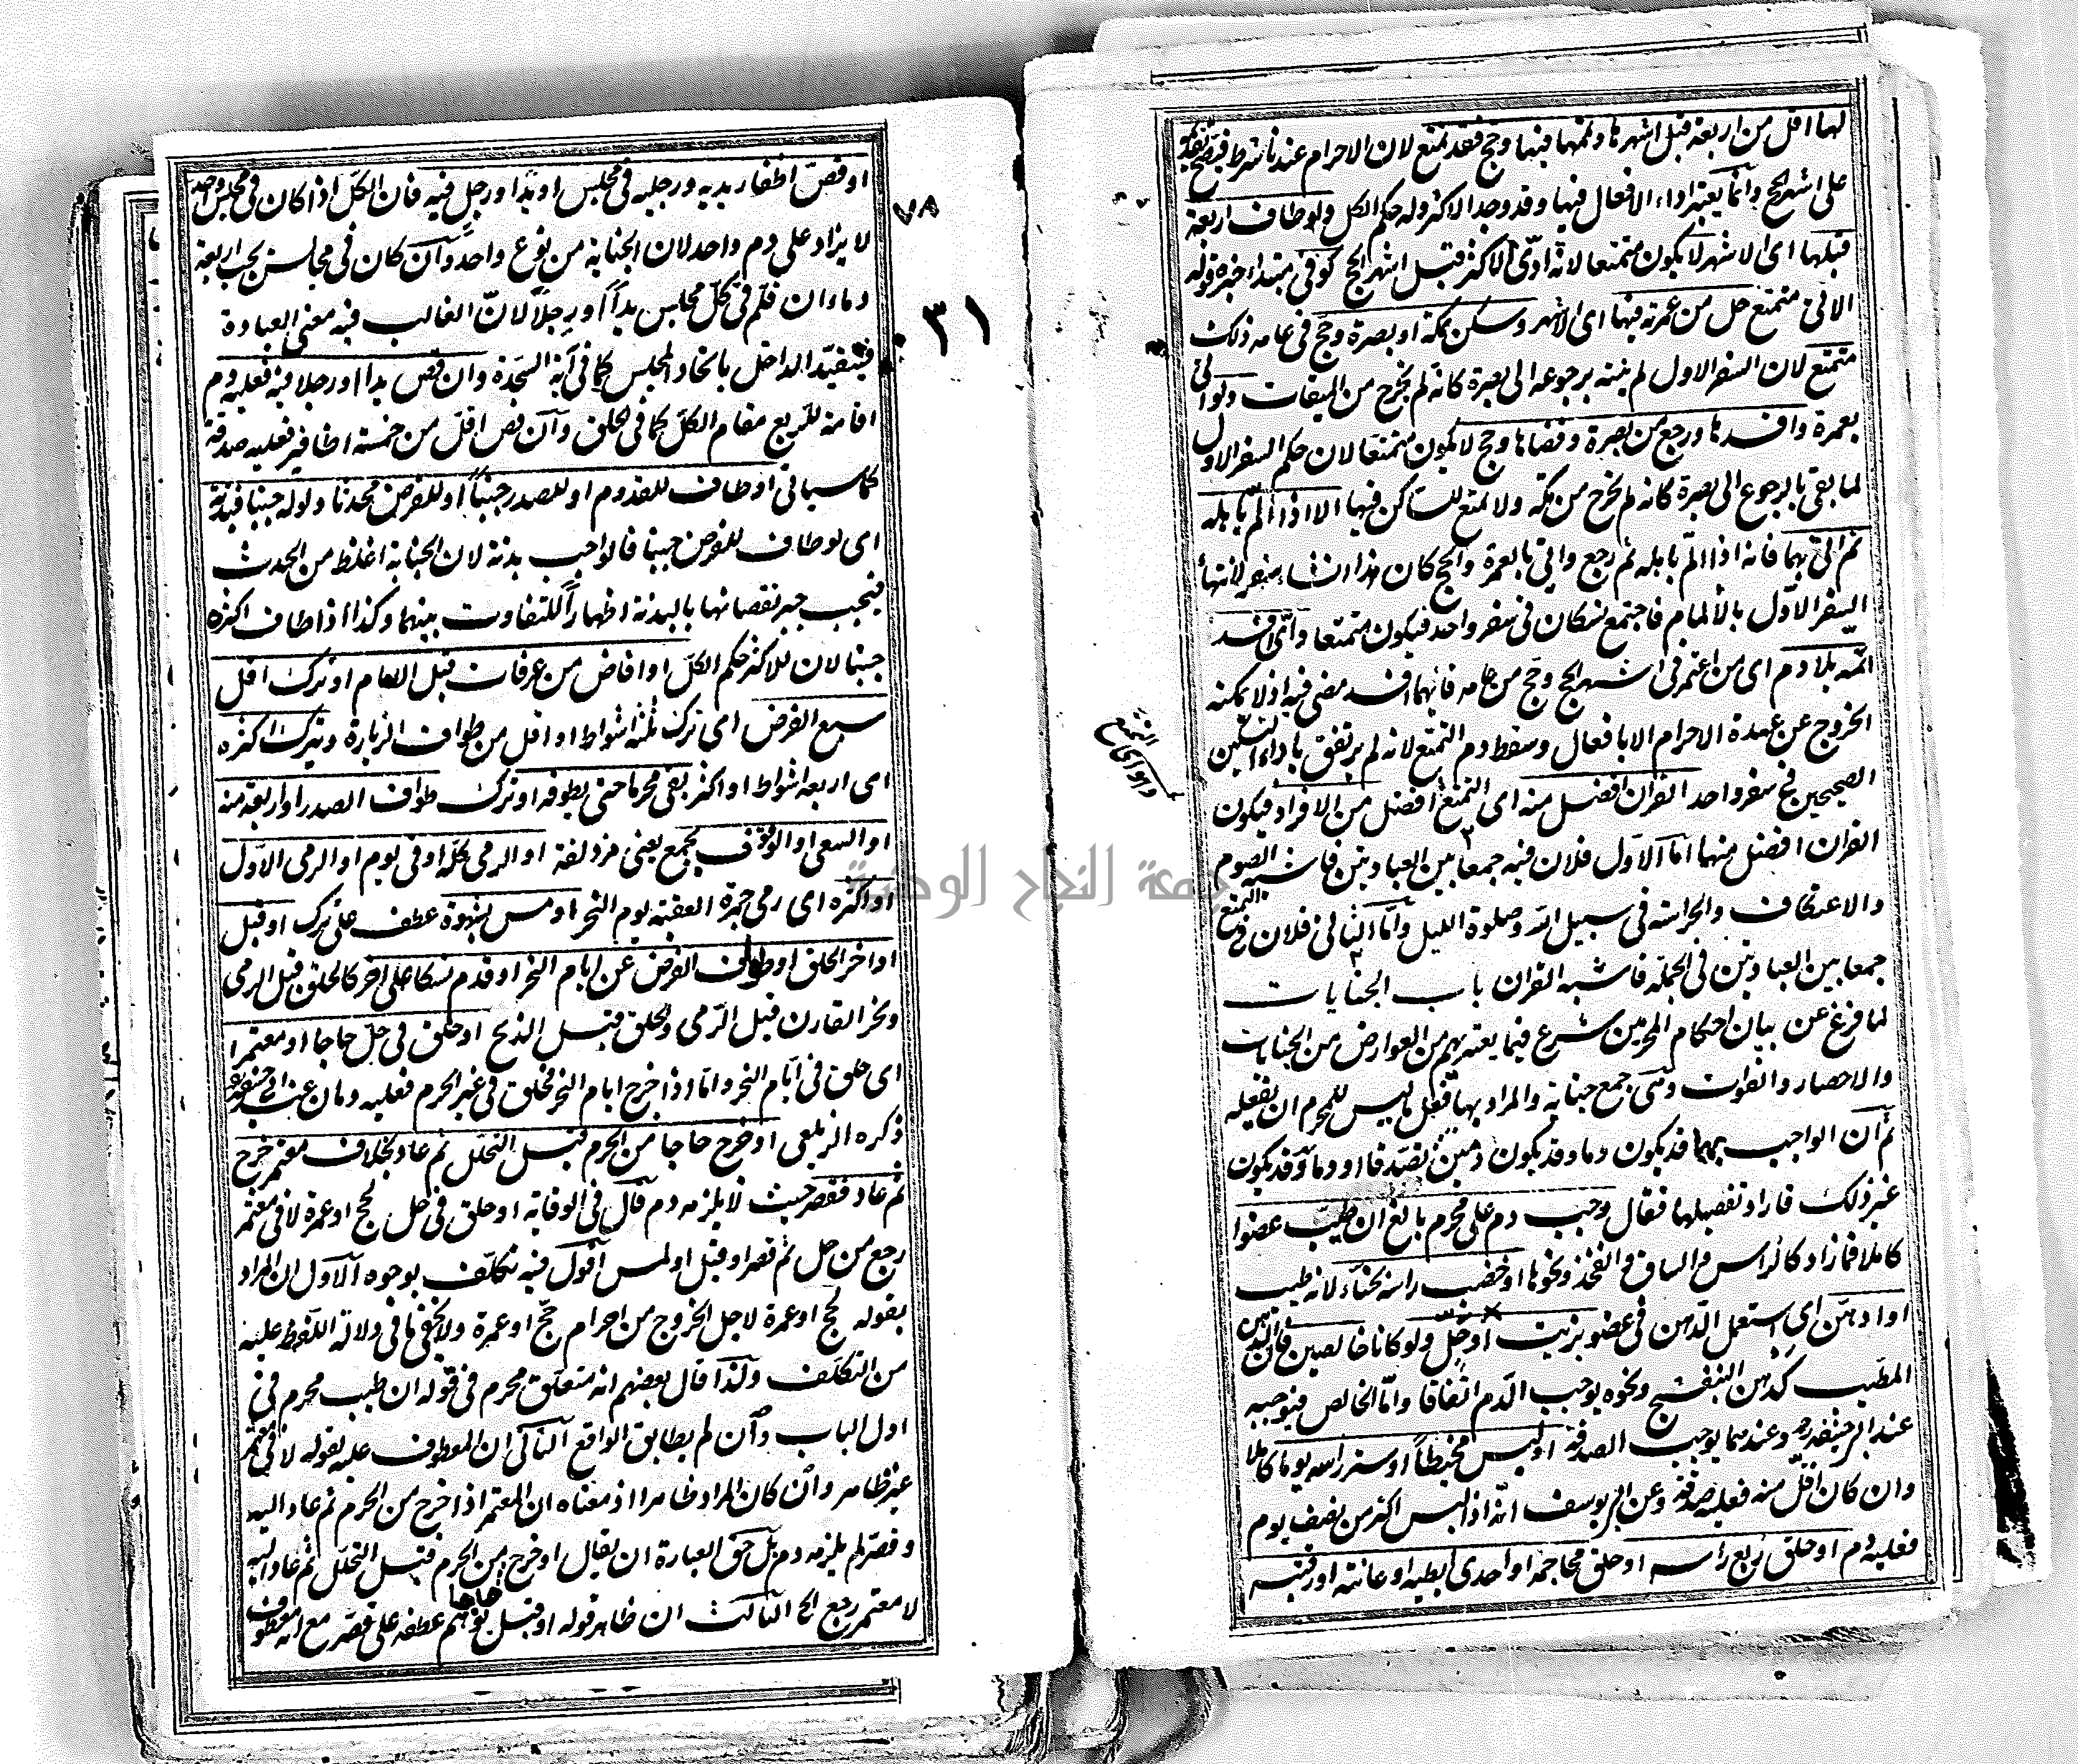 لها اقل من اربعة قبل اشهرها وتممها فيها وحج فقد تمتع لان الاحرام عندنا شرط فيصح تقديمه
على اشهر الحج وانما يعتبر اداء الافعال فيها وقد وجد الاكثر وله حكم الكل ولو طاف اربعة
قبلها اى الاشهر لا يكون متمتعا لانه ادى الاكثر قبل اشهر الحج كوفى مبتدا خبره قوله
الاتى متمتع حل من عمرته فيها اى الاشهر وسكن بمكة او بصرة وحج فى عامه ذلك
متمتع لان السفر الاول لم ينته برجوعه الى بصرة كانه لم يخرج من الميقات ولو اتى
بعمرة وافسدها ورجع من بصرة وقضاها وحج لا يكون متمتعا لان حكم السفر الاول
لما بقى بالرجوع الى بصرة كانه لم يخرج من مكة ولا تمتع للساكن فيها الا اذا الم باهله
ثم اتى بهما فانه اذا الم باهله ثم رجع واتى بالعمرة والحج كان هذا انشاء سفر لانتهاء
السفر الاول بالالمام فاجتمع نسكان فى سفر واحد فيكون متمتعا واى افسد
اتمه بلا دم اى من اعتمر فى اشهر الحج وحج من عامه فايهما افسد مضى فيه اذ لا يمكنه
الخروج عن عهدة الاحرام الا بافعال وسقط دم التمتع لانه لم يرتفق باداء النسكين
الصحيحين فى سفر واحد القران افضل منه اى التمتع افضل من الافراد فيكون
القران افضل منهما اما الاول فلان فيه جمعا بين العبادتين فاشبه الصوم
والاعتكاف والحراسة فى سبيل الله وصلوة الليل واما الثانى فلان فى التمتع
جمعا بين العبادتين فى الجملة فاشبه القران باب الجنايات
لما فرغ عن بيان احكام المحرمين شرع فيما يعتريهم من العوارض من الجنايات
والاحصار والفوات وهى جمع جناية والمراد بها فعل ما ليس للمحرم ان يفعله
ثم ان الواجب بها قد يكون دما وقد يكون دمين تصدقا او دما وقد يكون
غير ذلك فاراد تفصيلها فقال وجب دم على محرم بالغ ان طيب عضوا
كاملا فما زاد كالراس والساق والفخذ ونحوها او خضب راسه بحناء لانه طيب
او ادهن اى استعمل الدهن فى عضو بزيت او حل ولو كانا خالصين فان الدهن
المطيب كدهن البنفسج ونحوه يوجب الدم اتفاقا واما الخالص فيوجبه
عند ابى حنيفة رحمه وعندهما يوجب الصدقة او لبس مخيطا او ستر راسه يوما كاملا
وان كان اقل منه فعليه صدقة وعن ابى يوسف انه اذا لبس اكثر من نصف يوم
فعليه دم او حلق ربع راسه او حلق محاجمه او احدى ابطيه او عانته او رقبته
التمتع
وهو الجامع
٧٨
٣١
او قص اظفار يديه ورجليه فى مجلس او يدا او رجل فيه فان الكل اذا كان فى مجلس واحد
لا يزاد على دم واحد لان الجناية من نوع واحد وان كان فى مجالس يجب اربعة
دماء ان قلم فى كل مجلس يدا او رجلا لان الغالب فيه معنى العبادة
فيتقيد التداخل باتحاد المجلس كما فى آية السجدة وان قص يدا او رجلا فيه فعليه دم
اقامة للربع مقام الكل كما فى الحلق وان قص اقل من خمسة اظافير فعليه صدقة
كما سياتى او طاف للقدوم او للصدر جنبا او للفرض محدثا ولو له جنبا فبدنة
اى لو طاف للفرض جنبا فالواجب بدنة لان الجنابة اغلظ من الحدث
فيجب جبر نقصانها بالبدنة اظهارا للتفاوت بينهما وكذا اذا طاف اكثره
جنبا لان للاكثر حكم الكل او افاض من عرفات قبل الامام او ترك اقل
سبع الفرض اى ترك ثلثة اشواط او اقل من طواف الزيارة وبترك اكثره
اى اربعة اشواط او اكثر بقى محرما حتى يطوفه او ترك طواف الصدر او اربعة منه
او السعى او الوقوف بجمع يعنى مزدلفة او الرمى كله او فى يوم او الرمى الاول
او اكثره اى رمى جمرة العقبة يوم النحر او مس بشهوة عطف على ترك او قبل
او اخر الحلق او طواف الفرض عن ايام النحر او قدم نسكا على اخر كالحلق قبل الرمى
ونحر القارن قبل الرمى والحلق قبل الذبح او حلق فى حل حاجا او معتمرا
اى حلق فى ايام النحر واما اذا خرج ايام النحر فحلق فى غير الحرم فعليه دمان عند ابى حنيفة رحمه
ذكره الزيلعى او خرج حاجا من الحرم قبل التحلل ثم عاد بخلاف معتمر خرج
ثم عاد فقصر حيث لا يلزمه دم قال فى الوقاية او حلق فى حل لحج او عمرة لا فى معتمر
رجع من حل ثم قصر او قبل او لمس اقول فيه تكلف بوجوه الاول ان المراد
بقوله لحج او عمرة لاجل الخروج من احرام حج او عمرة ولا يخفى ما فى دلالة اللفظ عليه
من التكلف ولذا قال بعضهم انه متعلق بمحرم فى قوله ان طيب محرم فى
اول الباب وان لم يطابق الواقع الثانى ان المعطوف عليه لقوله لا فى معتمر
غير ظاهر وان كان المراد ظاهرا اذ معناه ان المعتمر اذا خرج من الحرم ثم عاد اليه
وقصر لم يلزمه دم بل حق العبارة ان يقال او خرج من الحرم قبل التحلل ثم عاد اليه
حاجا
لا معتمر رجع الخ الثالث ان ظاهر قوله او قبل يوهم عطفه على قصر مع انه معطوف
جامعة النجاح الوطنية